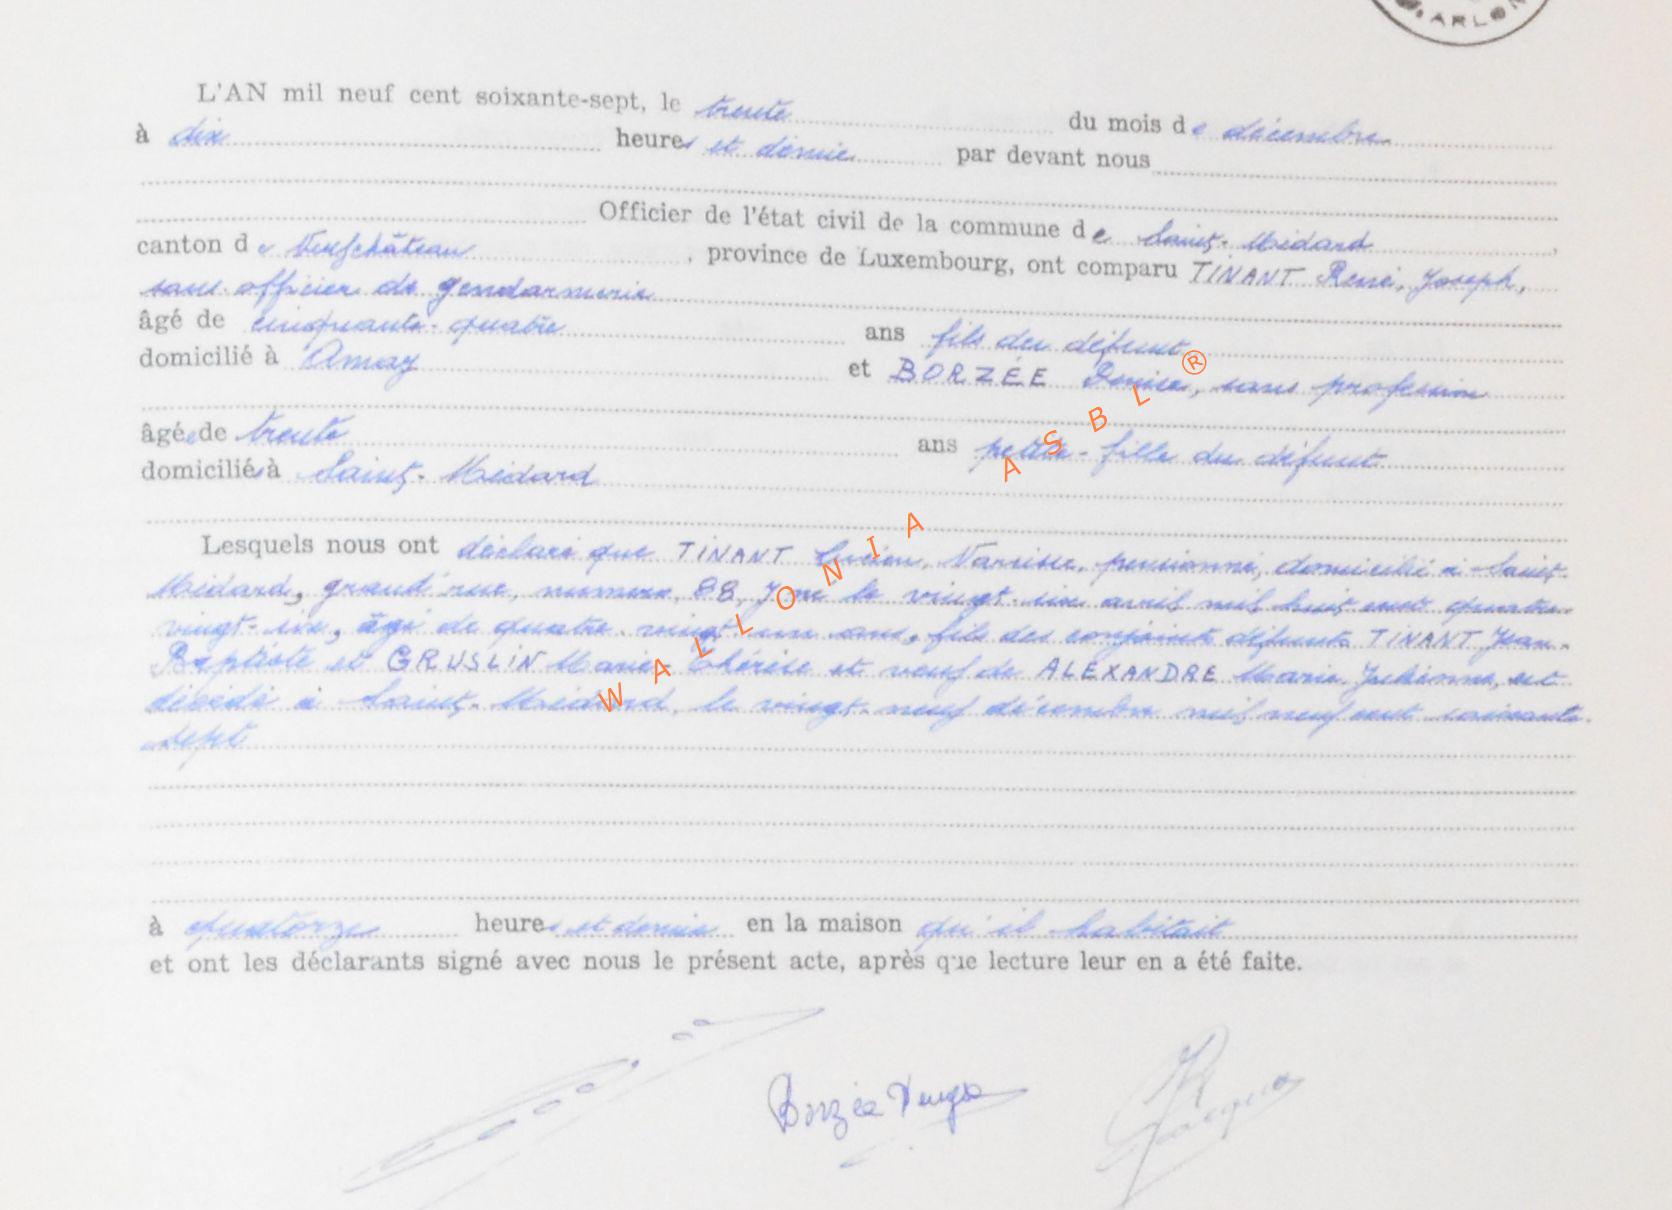 ARLON
L'AN mil neuf cent soixante-sept, le trente du mois de décembre
à dix heures et demie par devant nous
Officier de l'état civil de la commune de Saint-Médard
canton de Neufchâteau, province de Luxembourg, ont comparu TINANT René, Joseph,
sous officier de gendarmerie
âgé de cinquante-quatre ans fils du défunt
domicilié à Amay et BORZÉE Denise, sans profession
âgée de trente ans petite-fille du défunt
domiciliée à Saint-Médard
Lesquels nous ont déclaré que TINANT Lucien, Narcisse, pensionné, domicilié à Saint-
Médard, grand'rue, numéro 88, y né le vingt-six avril mil huit cent quatre-
vingt-six, âgé de quatre-vingt-un ans, fils des conjoints défunts TINANT Jean-
Baptiste et GRUSLIN Marie-Thérèse et veuf de ALEXANDRE Marie, Julienne, est
décédé à Saint-Médard, le vingt-neuf décembre mil neuf cent soixante-
sept
à quatorze heures et demie en la maison qu'il habitait
et ont les déclarants signé avec nous le présent acte, après que lecture leur en a été faite.
Borzée
Jacques
WALLONIA ASBL®